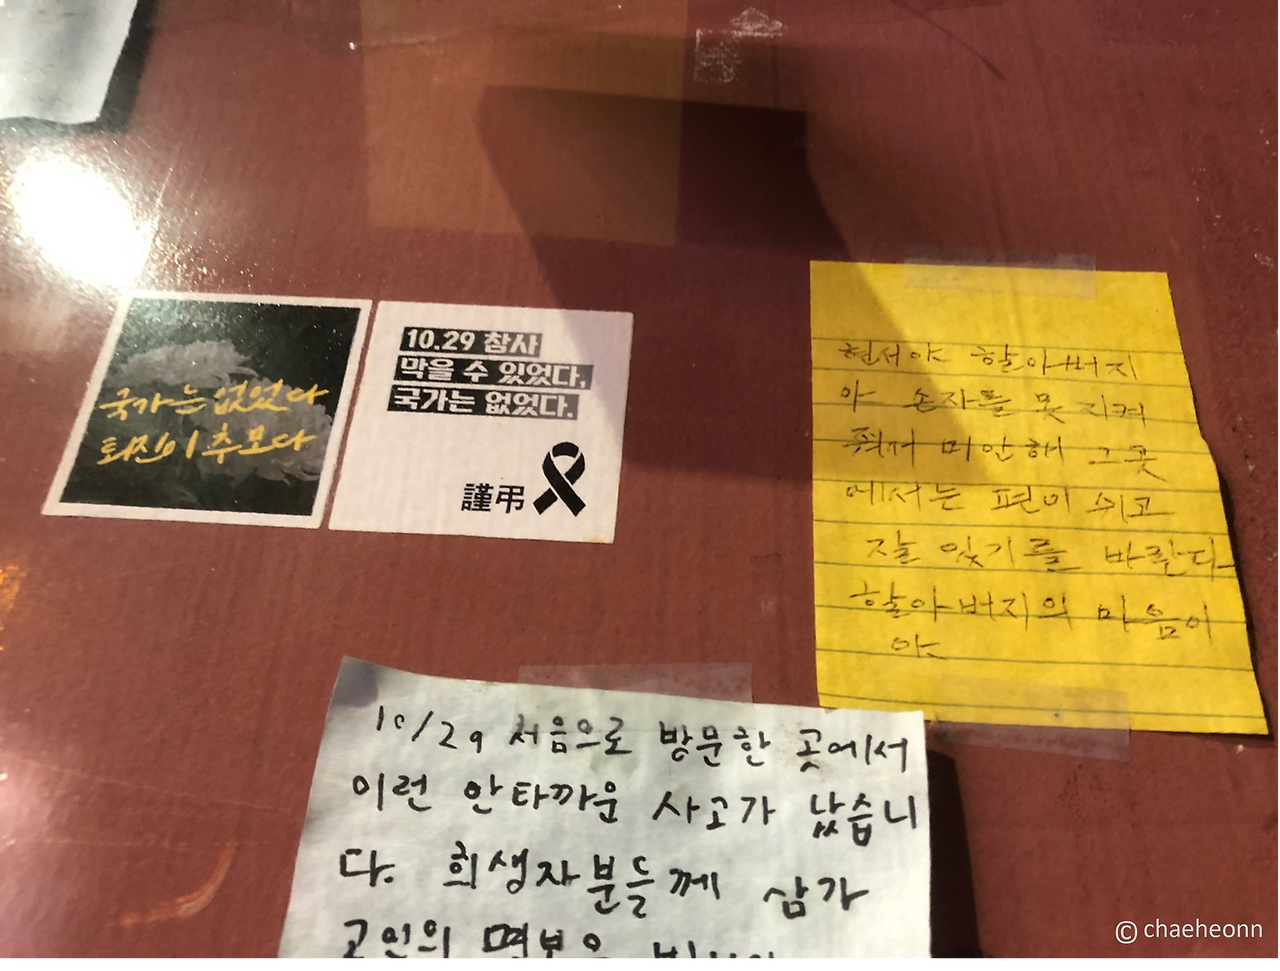 국가는 없었다
퇴진이 추모다
10.29 참사
막을 수 있었다,
국가는 없었다.
謹弔
현서야 할아버지
야 손자를 못 지켜
줘서 미안해 그곳
에서는 편이 쉬고
잘 있기를 바란다
할아버지의 마음이
야
10/29 처음으로 방문한 곳에서
이런 안타까운 사고가 났습니
다. 희생자분들께 삼가
고인의 명복을
© chaeheonn